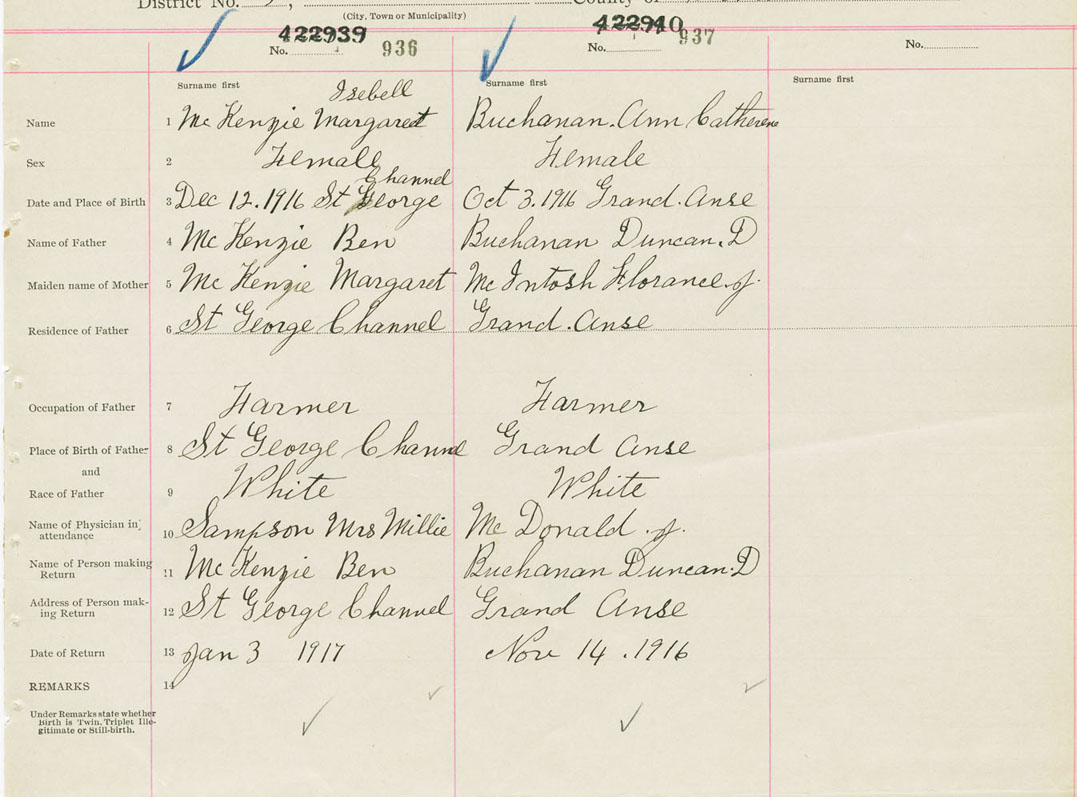 District No. County of
(City, Town or Municipality)
422939 422940
No. 936 No. 937 No.
Surname first Surname first Surname first
Isebell
Name 1 Mc Kenzie Margaret Buchanan. Ann Catherene
Sex 2 Female Female
Channel
Date and Place of Birth 3 Dec 12. 1916 St George Oct 3. 1916 Grand. Anse
Name of Father 4 Mc Kenzie Ben Buchanan Duncan. D
Maiden name of Mother 5 Mc Kenzie Margaret Mc Intosh Florance. J.
Residence of Father 6 St George Channel Grand. Anse
Occupation of Father 7 Farmer Farmer
Place of Birth of Father 8 St George Channel Grand Anse
and
Race of Father 9 White White
Name of Physician in attendance 10 Sampson Mrs Millie Mc Donald. J.
Name of Person making Return 11 Mc Kenzie Ben Buchanan Duncan. D
Address of Person mak-ing Return 12 St George Channel Grand Anse
Date of Return 13 Jan 3 1917 Nov 14. 1916
REMARKS 14
Under Remarks state whether
Birth is Twin, Triplet Ille-
gitimate or Still-birth.